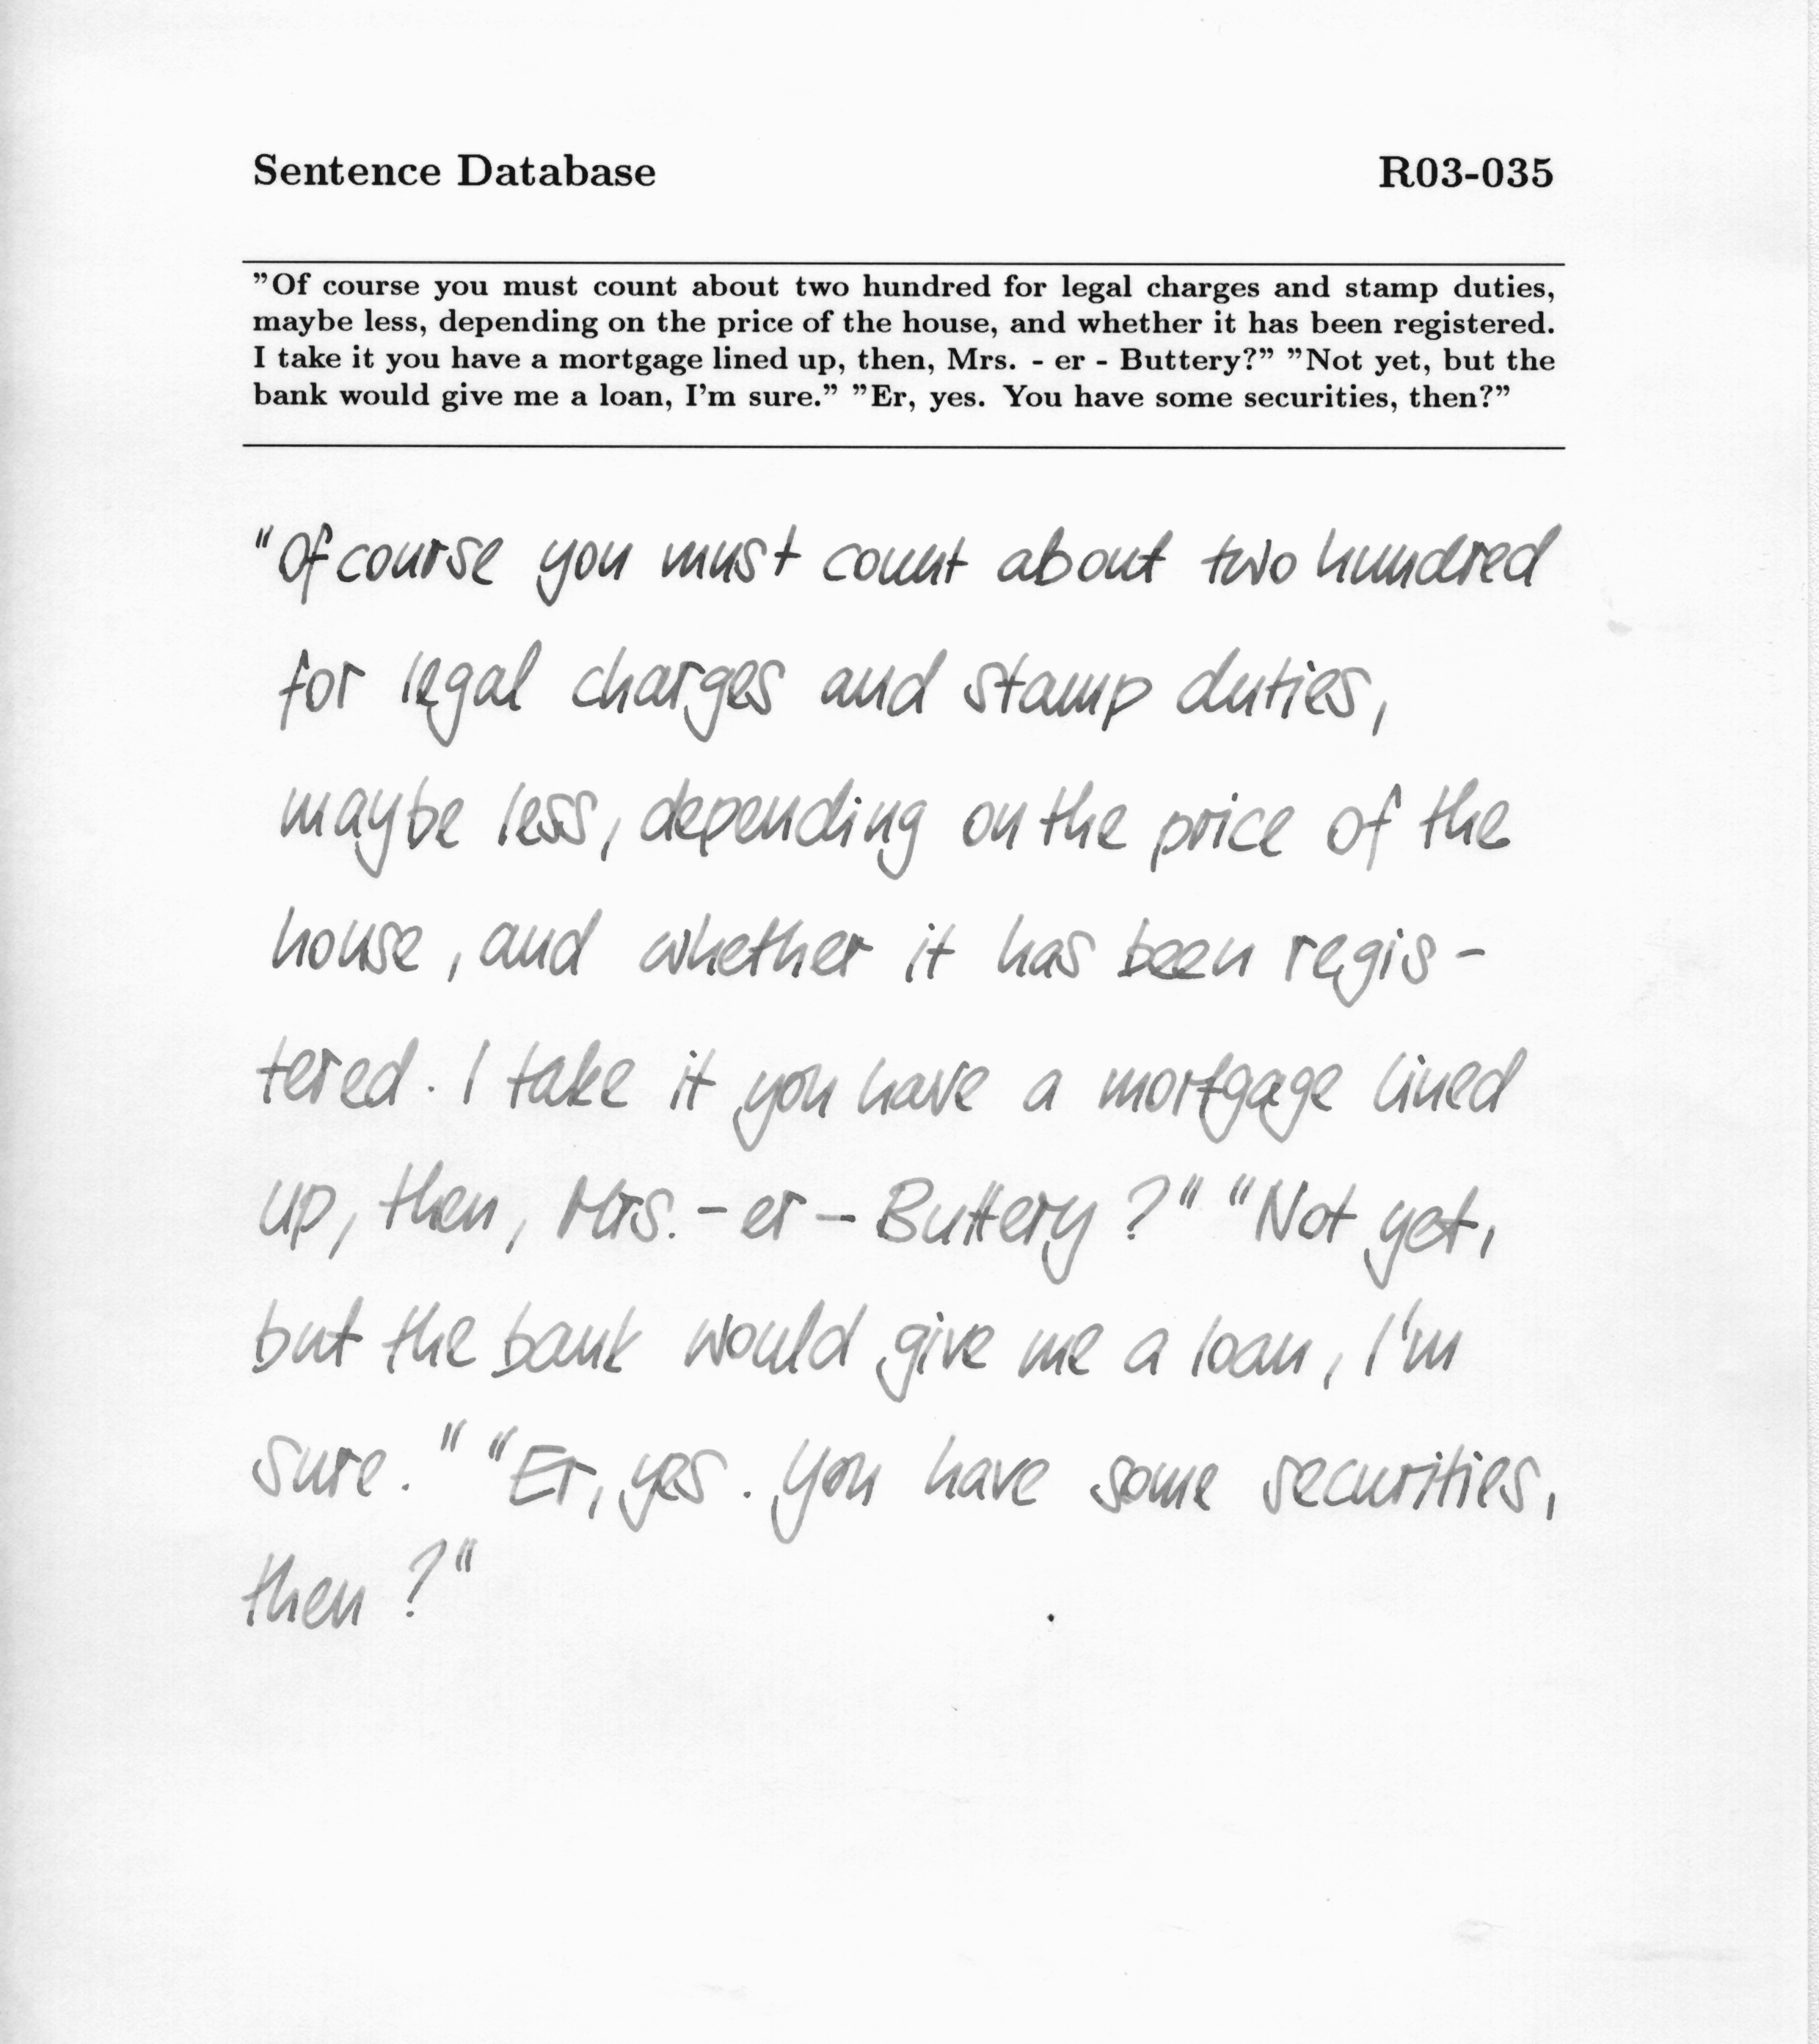 Sentence Database R03-035
”Of course you must count about two hundred for legal charges and stamp duties,
maybe less, depending on the price of the house, and whether it has been registered.
I take it you have a mortgage lined up, then, Mrs. - er - Buttery?” ”Not yet, but the
bank would give me a loan, I'm sure.” ”Er, yes. You have some securities, then?”
"Of course you must count about two hundred
for legal charges and stamp duties,
maybe less, depending on the price of the
house, and whether it has been regis-
tered. I take it you have a mortgage lined
up, then, Mrs. - er - Buttery?" "Not yet,
but the bank would give me a loan, I'm
sure." "Er, yes. You have some securities,
then?"